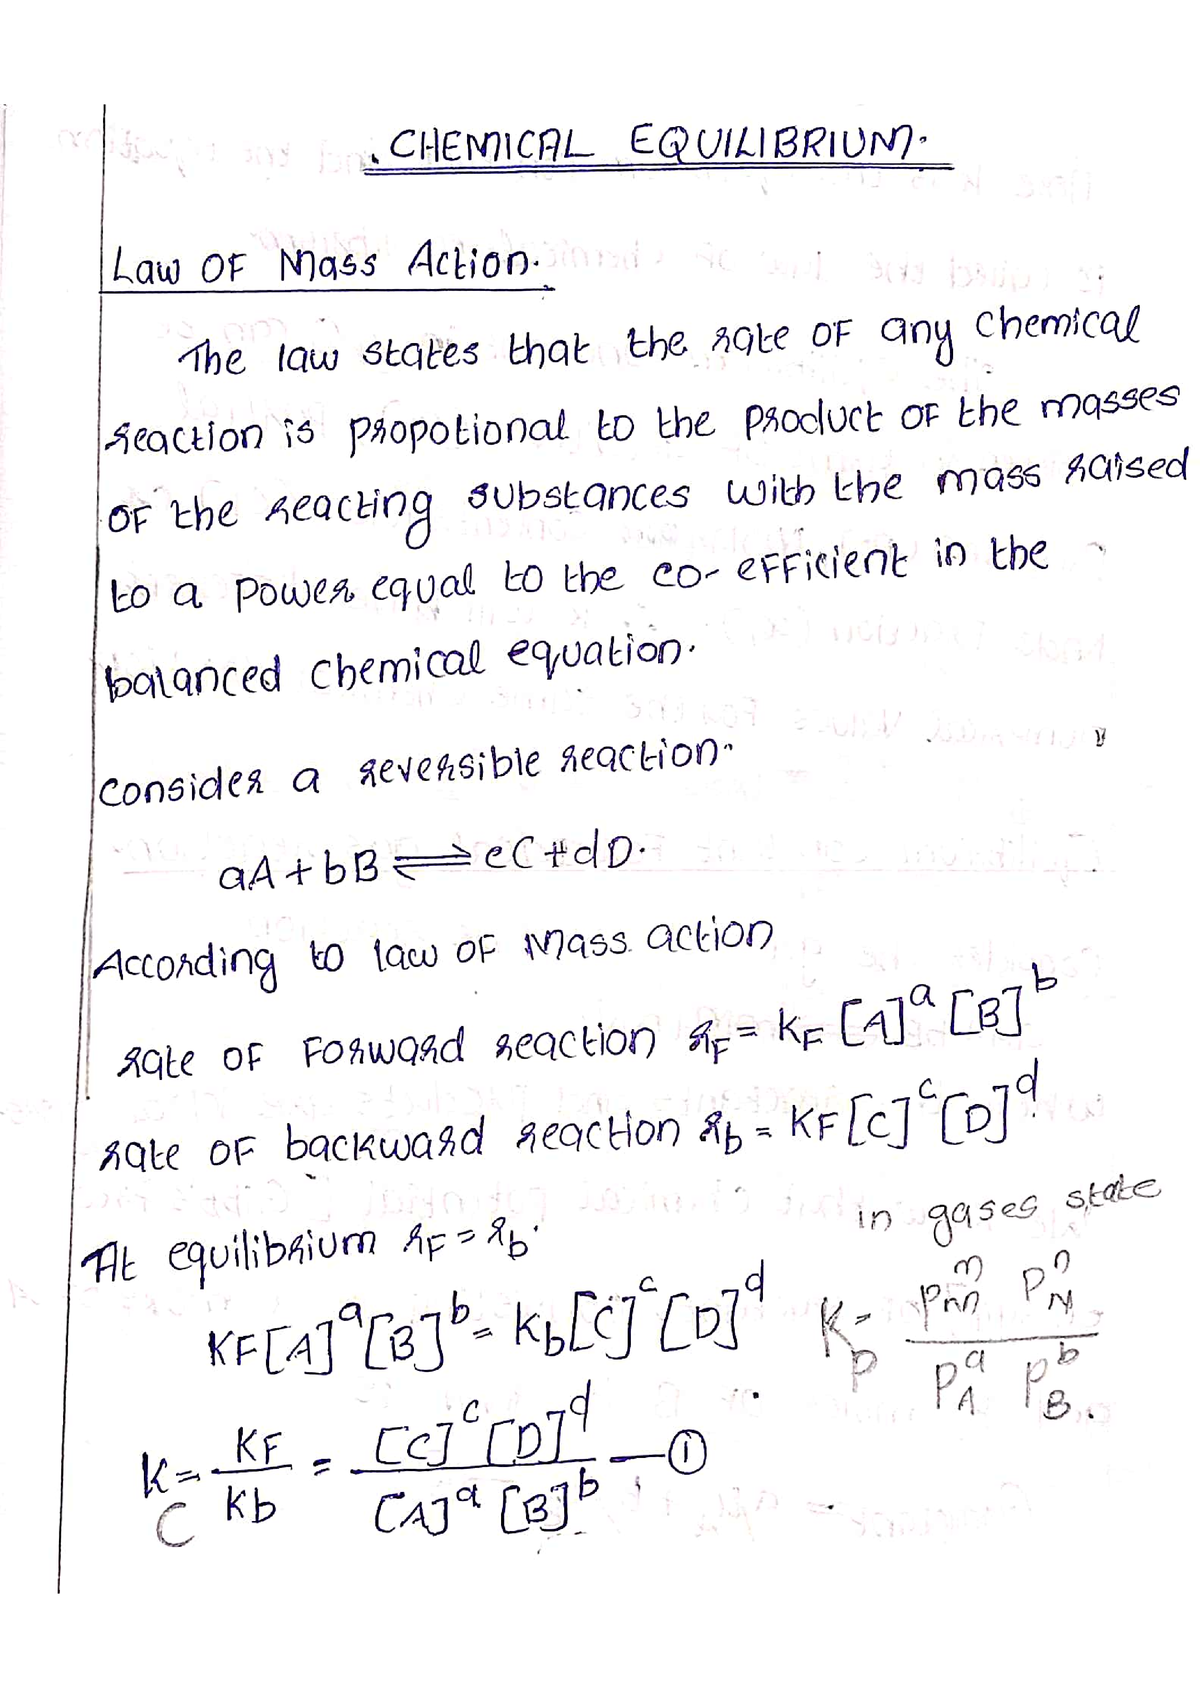 CHEMICAL EQUILIBRIUM.
Law OF Mass Action.
The law states that the rate OF any chemical
reaction is propotional to the product OF the masses
OF the reacting substances with the mass raised
to a power equal to the co-efficient in the
balanced chemical equation.
consider a reversible reaction.
aA + bB ⇌ eC + dD.
According to law OF Mass action
rate OF Forward reaction rF = KF [A]^a [B]^b
rate OF backward reaction rb = KF [C]^c [D]^d.
in gases state
At equilibrium rF = rb.
KF[A]^a [B]^b = Kb[C]^c [D]^d
Kp = Pm^m PN^n / PA^a PB^b.
Kc = KF/Kb = [C]^c [D]^d / [A]^a [B]^b —①